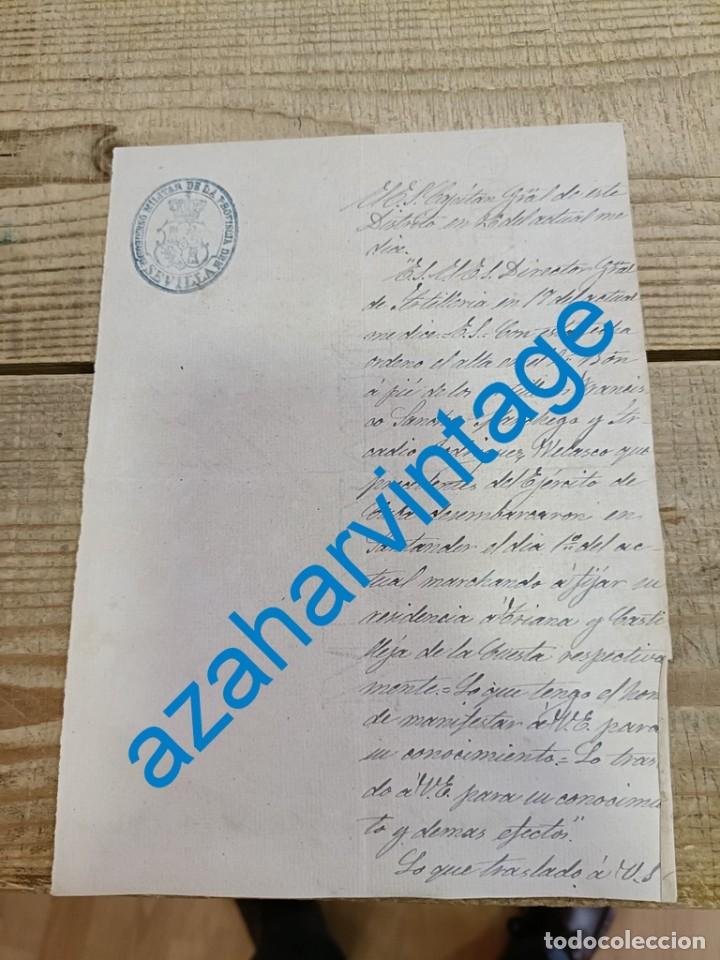 GOBIERNO MILITAR DE LA PROVINCIA DE
SEVILLA
El E. S. Capitan Gral de este
Distrito en 26 del actual me
dice.
"E. S. El E. S. Director Gral
de Artilleria en 17 del actual
me dice. E. S. = Con esta fecha
ordeno el alta en el Bon
á pié de los Francis
co y Ar
cadio Rodriguez Velasco que
procedentes del Ejército de
Cuba desembarcaron en
Santander el dia 1º del ac-
tual marchando á fijar su
residencia á Triana y Casti
lleja de la Cuesta respectiva
mente. = Lo que tengo el hon
de manifestar á V. E. para
su conocimiento = Lo tras
do á V. E. para su conocimi
to y demas efectos."
Lo que traslado á V. S.
azaharvintage
todocoleccion